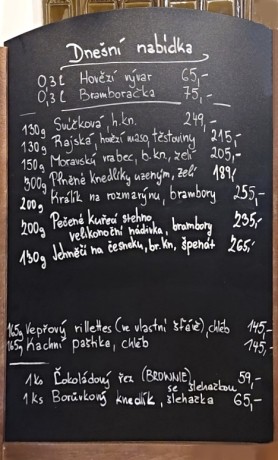 Dnešní nabídka
0,3l Hovězí vývar 65,-
0,3l Bramboračka 75,-
130g Svíčková, h.kn. 249,-
130g Rajská, hovězí maso, těstoviny 215,-
150g Moravský vrabec, b.kn., zelí 205,-
300g Plněné knedlíky uzeným, zelí 189,-
200g Králík na rozmarýnu, brambory 255,-
200g Pečené kuřecí stehno,
velikonoční nádivka, brambory 235,-
130g Jehněčí na česneku, br.kn, špenát 265,-
165g Vepřový rillettes (ve vlastní šťávě), chléb 145,-
165g Kachní paštika, chléb 145,-
1ks Čokoládový řez (BROWNIE) 59,-
se šlehačkou
1ks Borůvkový knedlík, šlehačka 65,-